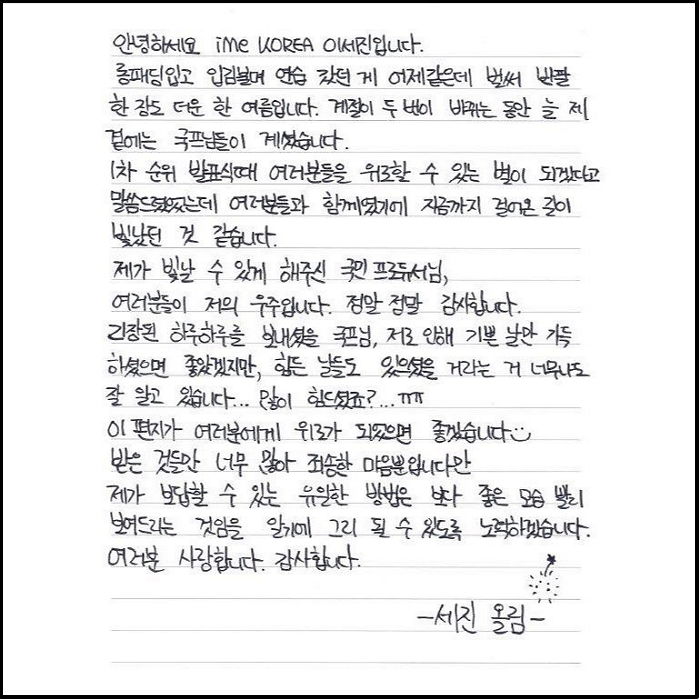 안녕하세요 iMe KOREA 이세진입니다.
롱패딩입고 입김불며 연습 갔던 게 어제같은데 벌써 반팔
한 장도 더운 한 여름입니다. 계절이 두 번이 바뀌는 동안 늘 제
곁에는 국프님들이 계셨습니다.
1차 순위 발표식때 여러분들을 위로할 수 있는 별이 되겠다고
말씀드렸었는데 여러분들과 함께였기에 지금까지 걸어온 길이
빛났던 것 같습니다.
제가 빛날 수 있게 해주신 국민 프로듀서님,
여러분들이 저의 우주입니다. 정말 정말 감사합니다.
긴장된 하루하루를 보내셨을 국프님, 저로 인해 기쁜 날만 가득
하셨으면 좋았겠지만, 힘든 날들도 있으셨을 거라는 거 너무나도
잘 알고 있습니다... 많이 힘드셨죠?...ㅠㅠ
이 편지가 여러분에게 위로가 되었으면 좋겠습니다☺
받은 것들만 너무 많아 죄송한 마음뿐입니다만
제가 보답할 수 있는 유일한 방법은 보다 좋은 모습 빨리
보여드리는 것임을 알기에 그리 될 수 있도록 노력하겠습니다.
여러분 사랑합니다. 감사합니다.
-세진 올림-